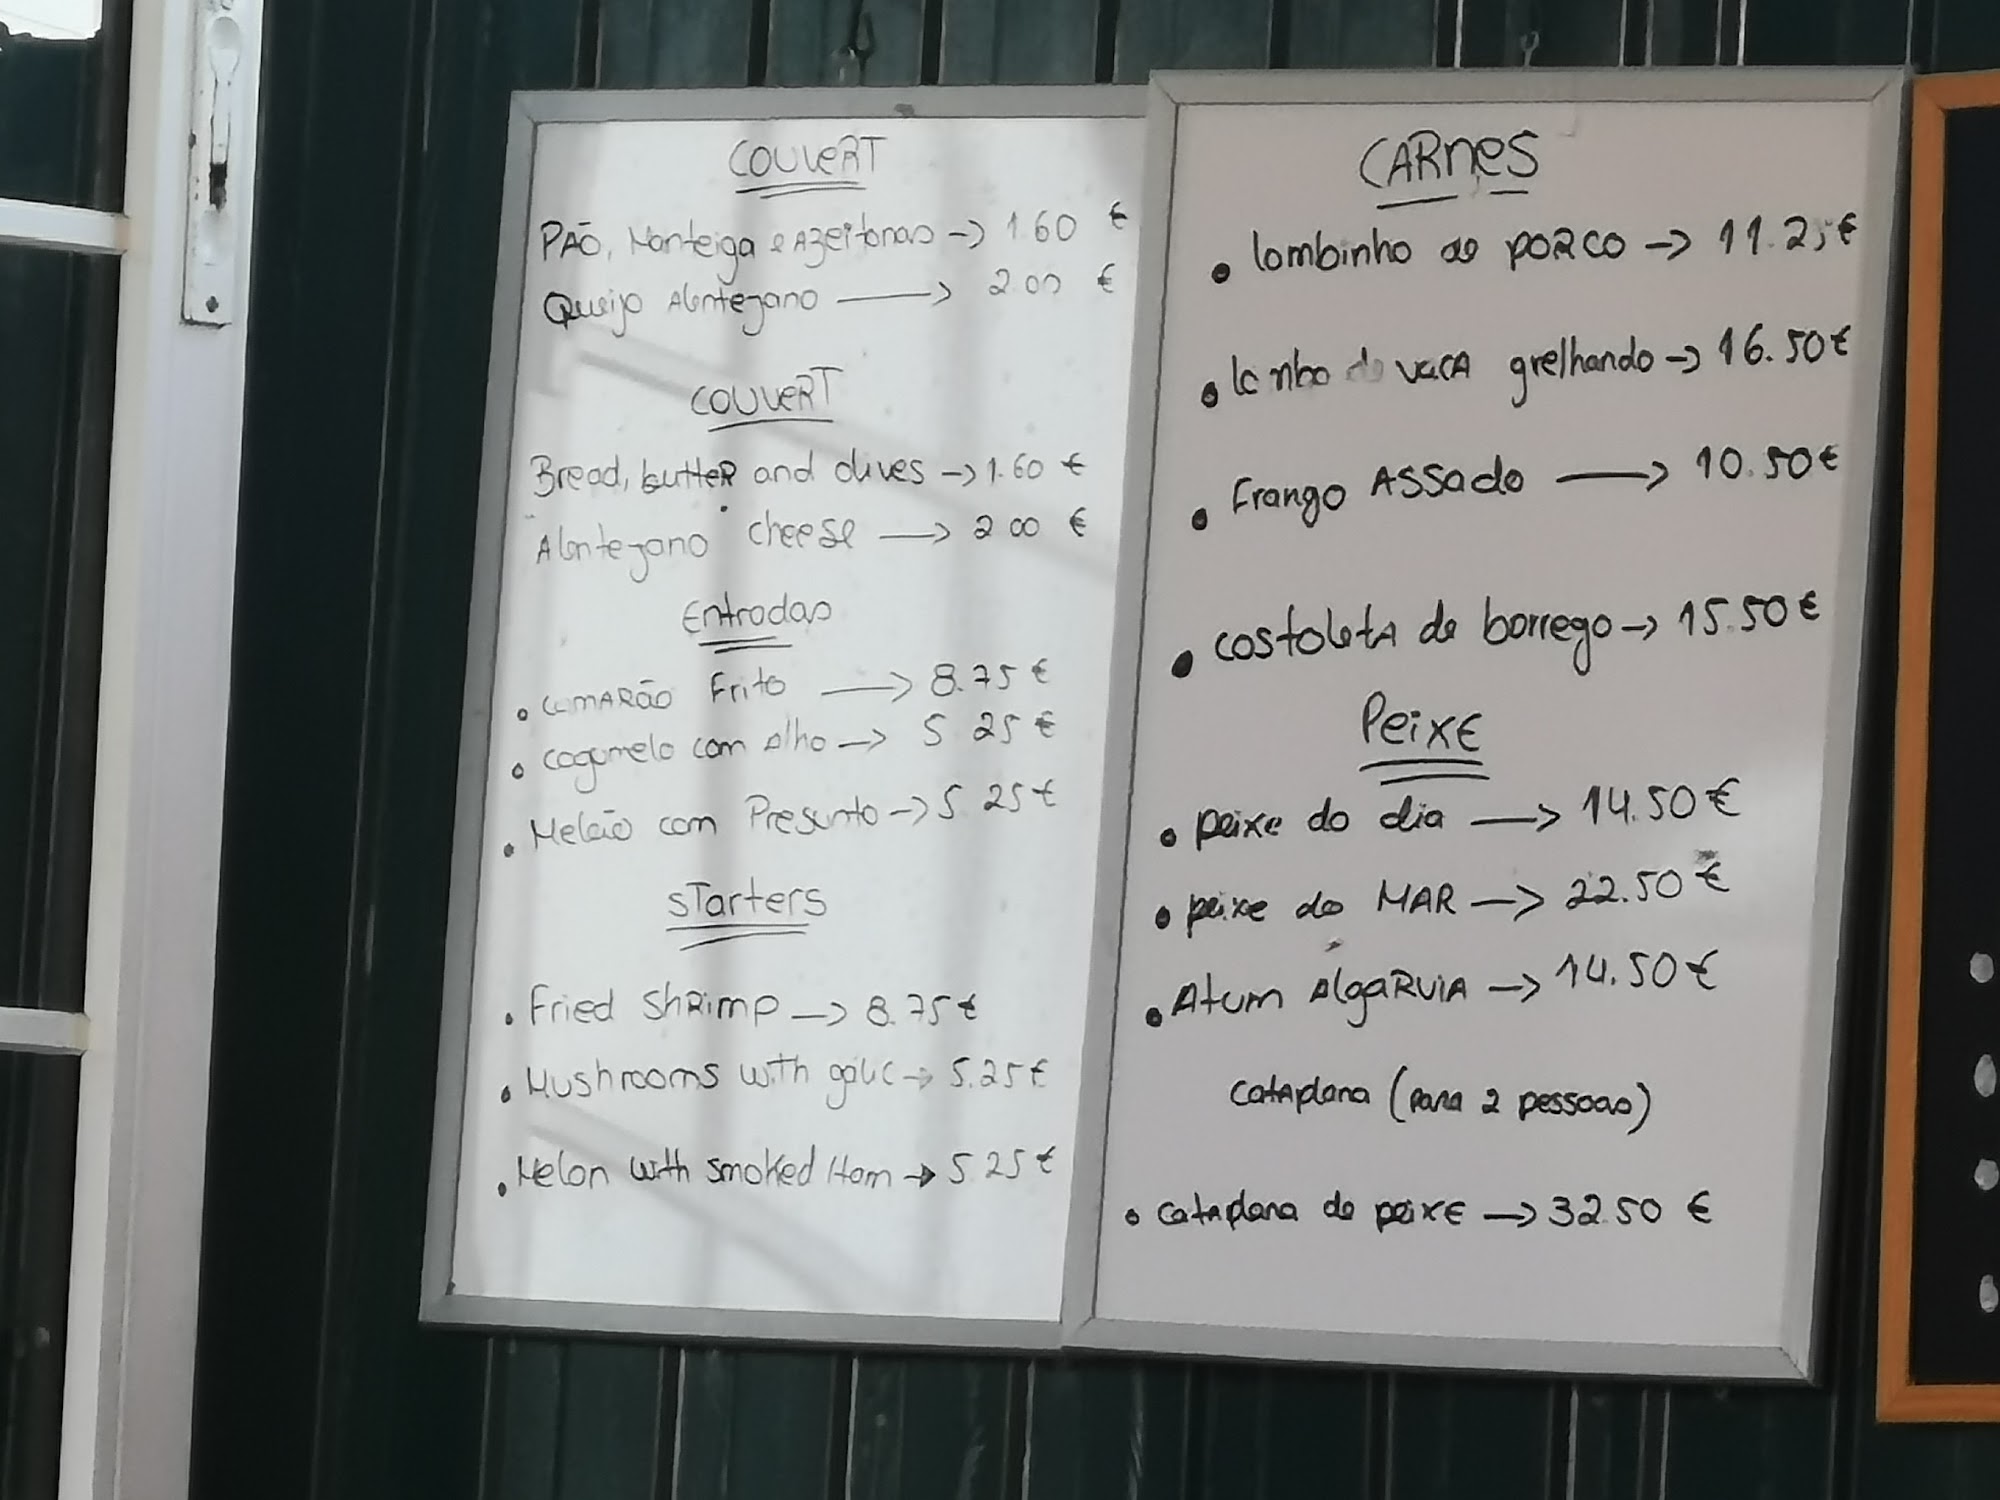 COUVERT
PÃO, Manteiga e Azeitonas -> 1.60 €
Queijo Alentejano -> 2.00 €
COUVERT
Bread, butter and olives -> 1.60 €
Alentejano cheese -> 2.00 €
Entradas
• CAMARÃO Frito -> 8.75 €
• cogumelo com Alho -> 5.25 €
• Melão com Presunto -> 5.25 €
STarters
• Fried Shrimp -> 8.75 €
• Mushrooms with galic -> 5.25 €
• Melon with smoked Ham -> 5.25 €
CARNES
• lombinho de PORCO -> 11.25 €
• lombo de VACA grelhando -> 16.50 €
• Frango ASSado -> 10.50 €
• COSTOLETA de borrego -> 15.50 €
PEIXE
• peixe do dia -> 14.50 €
• peixe do MAR -> 22.50 €
• Atum AlgaRVIA -> 14.50 €
CATAplana (para 2 pessoas)
• CATAplana de peixe -> 32.50 €